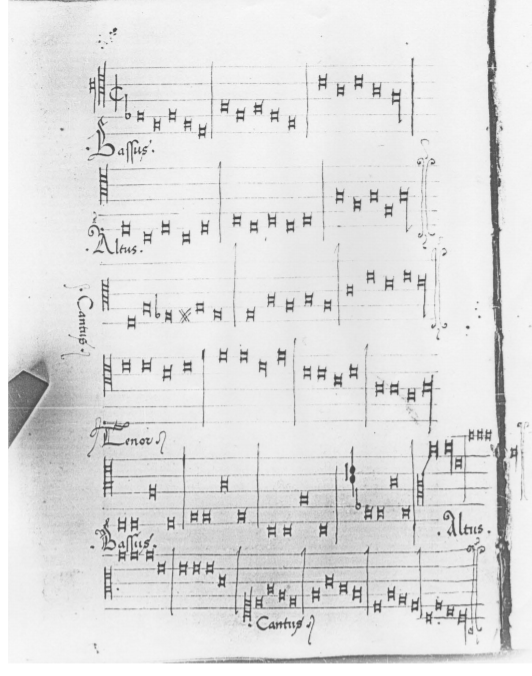 Bassus.
Altus.
Cantus.
Tenor
Bassus.
Altus.
Cantus